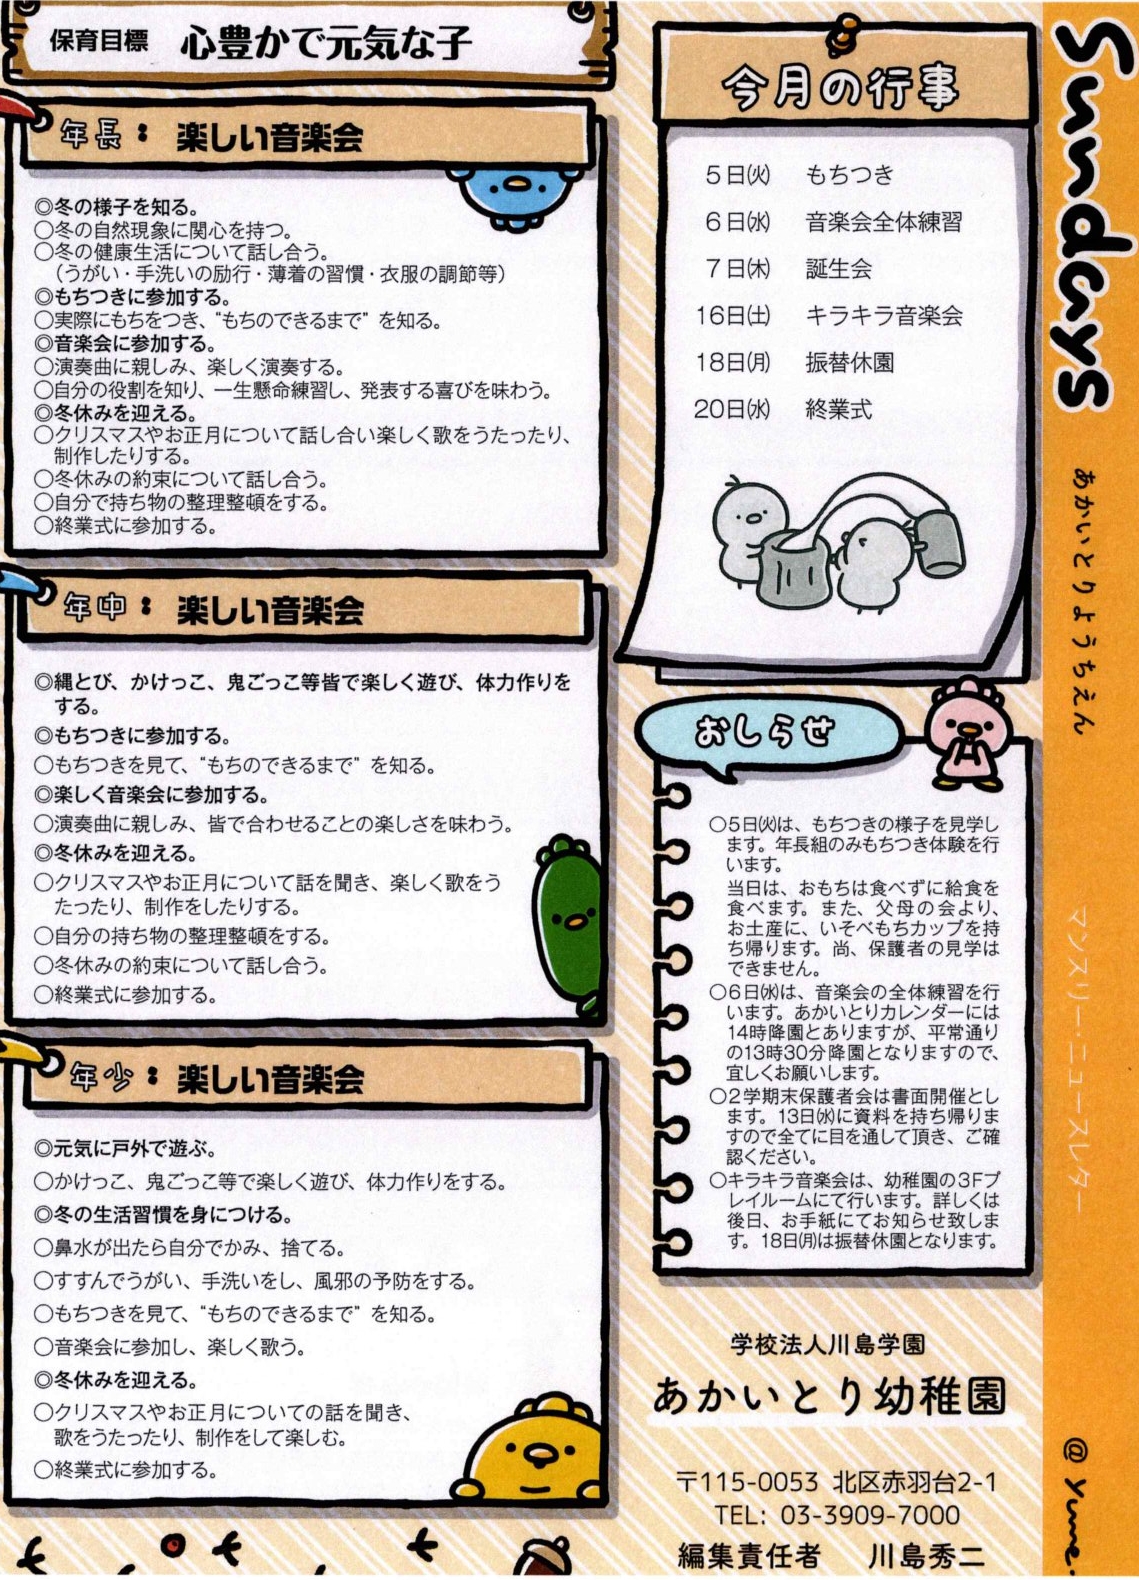 保育目標 心豊かで元気な子
年長： 楽しい音楽会
◎冬の様子を知る。
○冬の自然現象に関心を持つ。
○冬の健康生活について話し合う。
（うがい・手洗いの励行・薄着の習慣・衣服の調節等）
◎もちつきに参加する。
○実際にもちをつき、“もちのできるまで”を知る。
◎音楽会に参加する。
○演奏曲に親しみ、楽しく演奏する。
○自分の役割を知り、一生懸命練習し、発表する喜びを味わう。
◎冬休みを迎える。
○クリスマスやお正月について話し合い楽しく歌をうたったり、
制作したりする。
○冬休みの約束について話し合う。
○自分で持ち物の整理整頓をする。
○終業式に参加する。
年中： 楽しい音楽会
◎縄とび、かけっこ、鬼ごっこ等皆で楽しく遊び、体力作りを
する。
◎もちつきに参加する。
○もちつきを見て、“もちのできるまで”を知る。
◎楽しく音楽会に参加する。
○演奏曲に親しみ、皆で合わせることの楽しさを味わう。
◎冬休みを迎える。
○クリスマスやお正月について話を聞き、楽しく歌をう
たったり、制作をしたりする。
○自分の持ち物の整理整頓をする。
○冬休みの約束について話し合う。
○終業式に参加する。
年少： 楽しい音楽会
◎元気に戸外で遊ぶ。
○かけっこ、鬼ごっこ等で楽しく遊び、体力作りをする。
◎冬の生活習慣を身につける。
○鼻水が出たら自分でかみ、捨てる。
○すすんでうがい、手洗いをし、風邪の予防をする。
○もちつきを見て、“もちのできるまで”を知る。
○音楽会に参加し、楽しく歌う。
◎冬休みを迎える。
○クリスマスやお正月についての話を聞き、
歌をうたったり、制作をして楽しむ。
○終業式に参加する。
今月の行事
5日㈫ もちつき
6日㈬ 音楽会全体練習
7日㈭ 誕生会
16日㈯ キラキラ音楽会
18日㈪ 振替休園
20日㈬ 終業式
おしらせ
○5日㈫は、もちつきの様子を見学し
ます。年長組のみもちつき体験を行
います。
当日は、おもちは食べずに給食を
食べます。また、父母の会より、
お土産に、いそべもちカップを持
ち帰ります。尚、保護者の見学は
できません。
○6日㈬は、音楽会の全体練習を行
います。あかいとりカレンダーには
14時降園とありますが、平常通り
の13時30分降園となりますので、
宜しくお願いします。
○2学期末保護者会は書面開催とし
ます。13日㈬に資料を持ち帰りま
すので全てに目を通して頂き、ご確
認ください。
○キラキラ音楽会は、幼稚園の3Fプ
レイルームにて行います。詳しくは
後日、お手紙にてお知らせ致しま
す。18日㈪は振替休園となります。
学校法人川島学園
あかいとり幼稚園
〒115-0053 北区赤羽台2-1
TEL: 03-3909-7000
編集責任者 川島秀二
Sundays
あかいとりようちえん
マンスリー・ニュースレター
@ Yume.